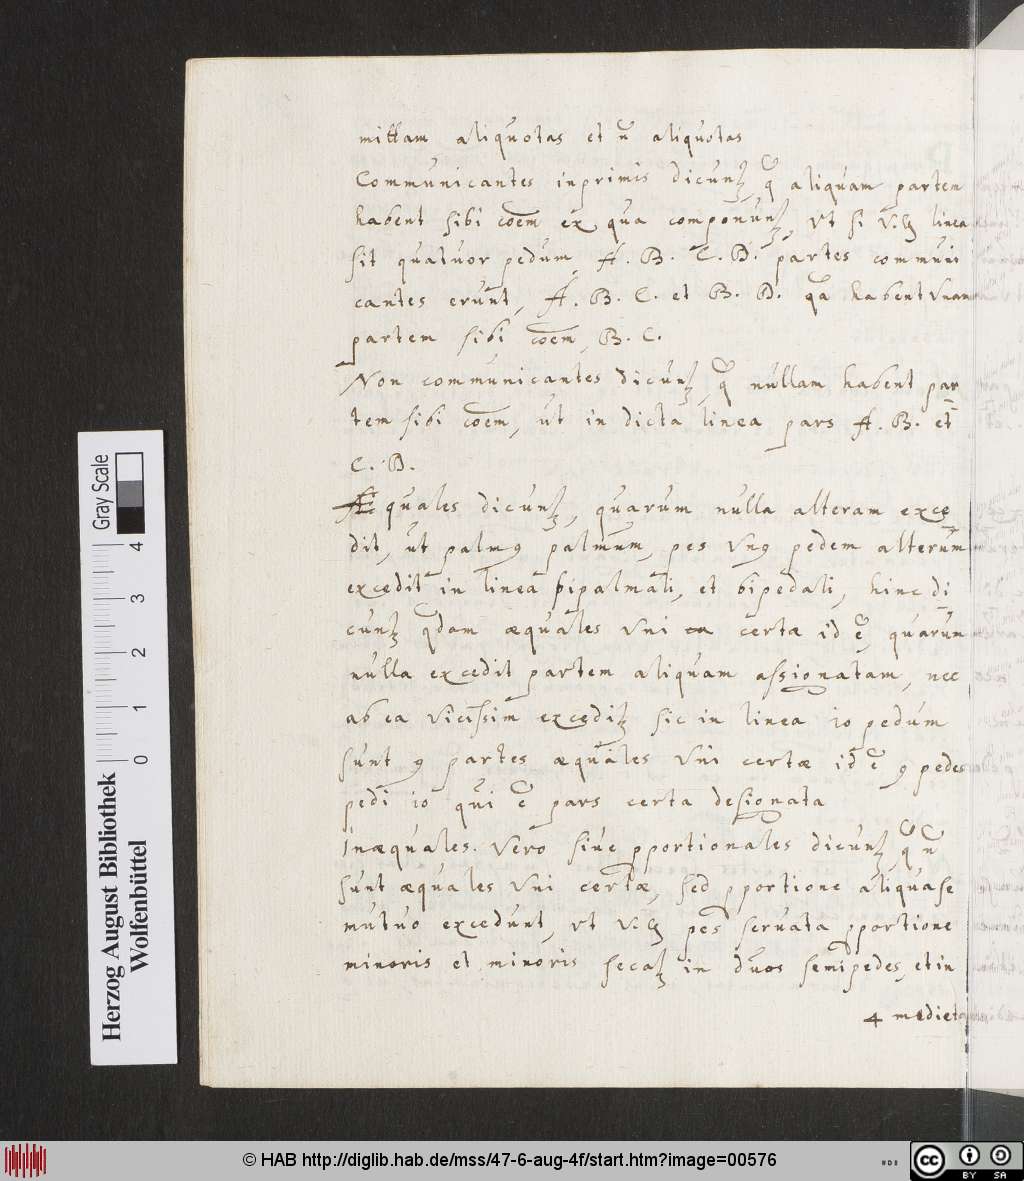 mittam aliquotas et n̄ aliquotas
Communicantes inprimis dicunꝫ, q̄ aliquam partem
habent sibi cōem ex qua componunꝫ, vt si v.g linea
sit quatuor pedum, A. B. C. D. partes communi
cantes erunt, A. B. C. et B. D. qa habent vnam
partem sibi cōem, B. C.
Non communicantes dicunꝫ, q̄ nullam habent par
tem sibi cōem, ut in dicta linea pars A. B. et
C. D.
Æquales dicunꝫ, quarum nulla alteram exce
dit, ut palmꝯ palmum, pes vnꝯ pedem alterum
excedit in linea bipalmali, et bipedali, hinc di
cunꝫ q̄dam æquales vni certæ id ē, quarum
nulla excedit partem aliquam assignatam, nec
ab ea vicissim excediꝫ sic in linea 10 pedum
sunt 9 partes æquales vni certæ id ē 9 pedes
pedi 10 qui ē pars certa designata
Inæquales. vero siue ꝓportionales dicunꝫ, q̄ n̄
sunt æquales vni certæ, sed ꝓportione aliqua se
mutuo excedunt, vt v.g pes seruata ꝓportione
minoris et minoris secaꝫ in duos semipedes, et in
4 medieta
Herzog August Bibliothek
Wolfenbüttel
Gray Scale
0 1 2 3 4
© HAB http://diglib.hab.de/mss/47-6-aug-4f/start.htm?image=00576
cc BY SA